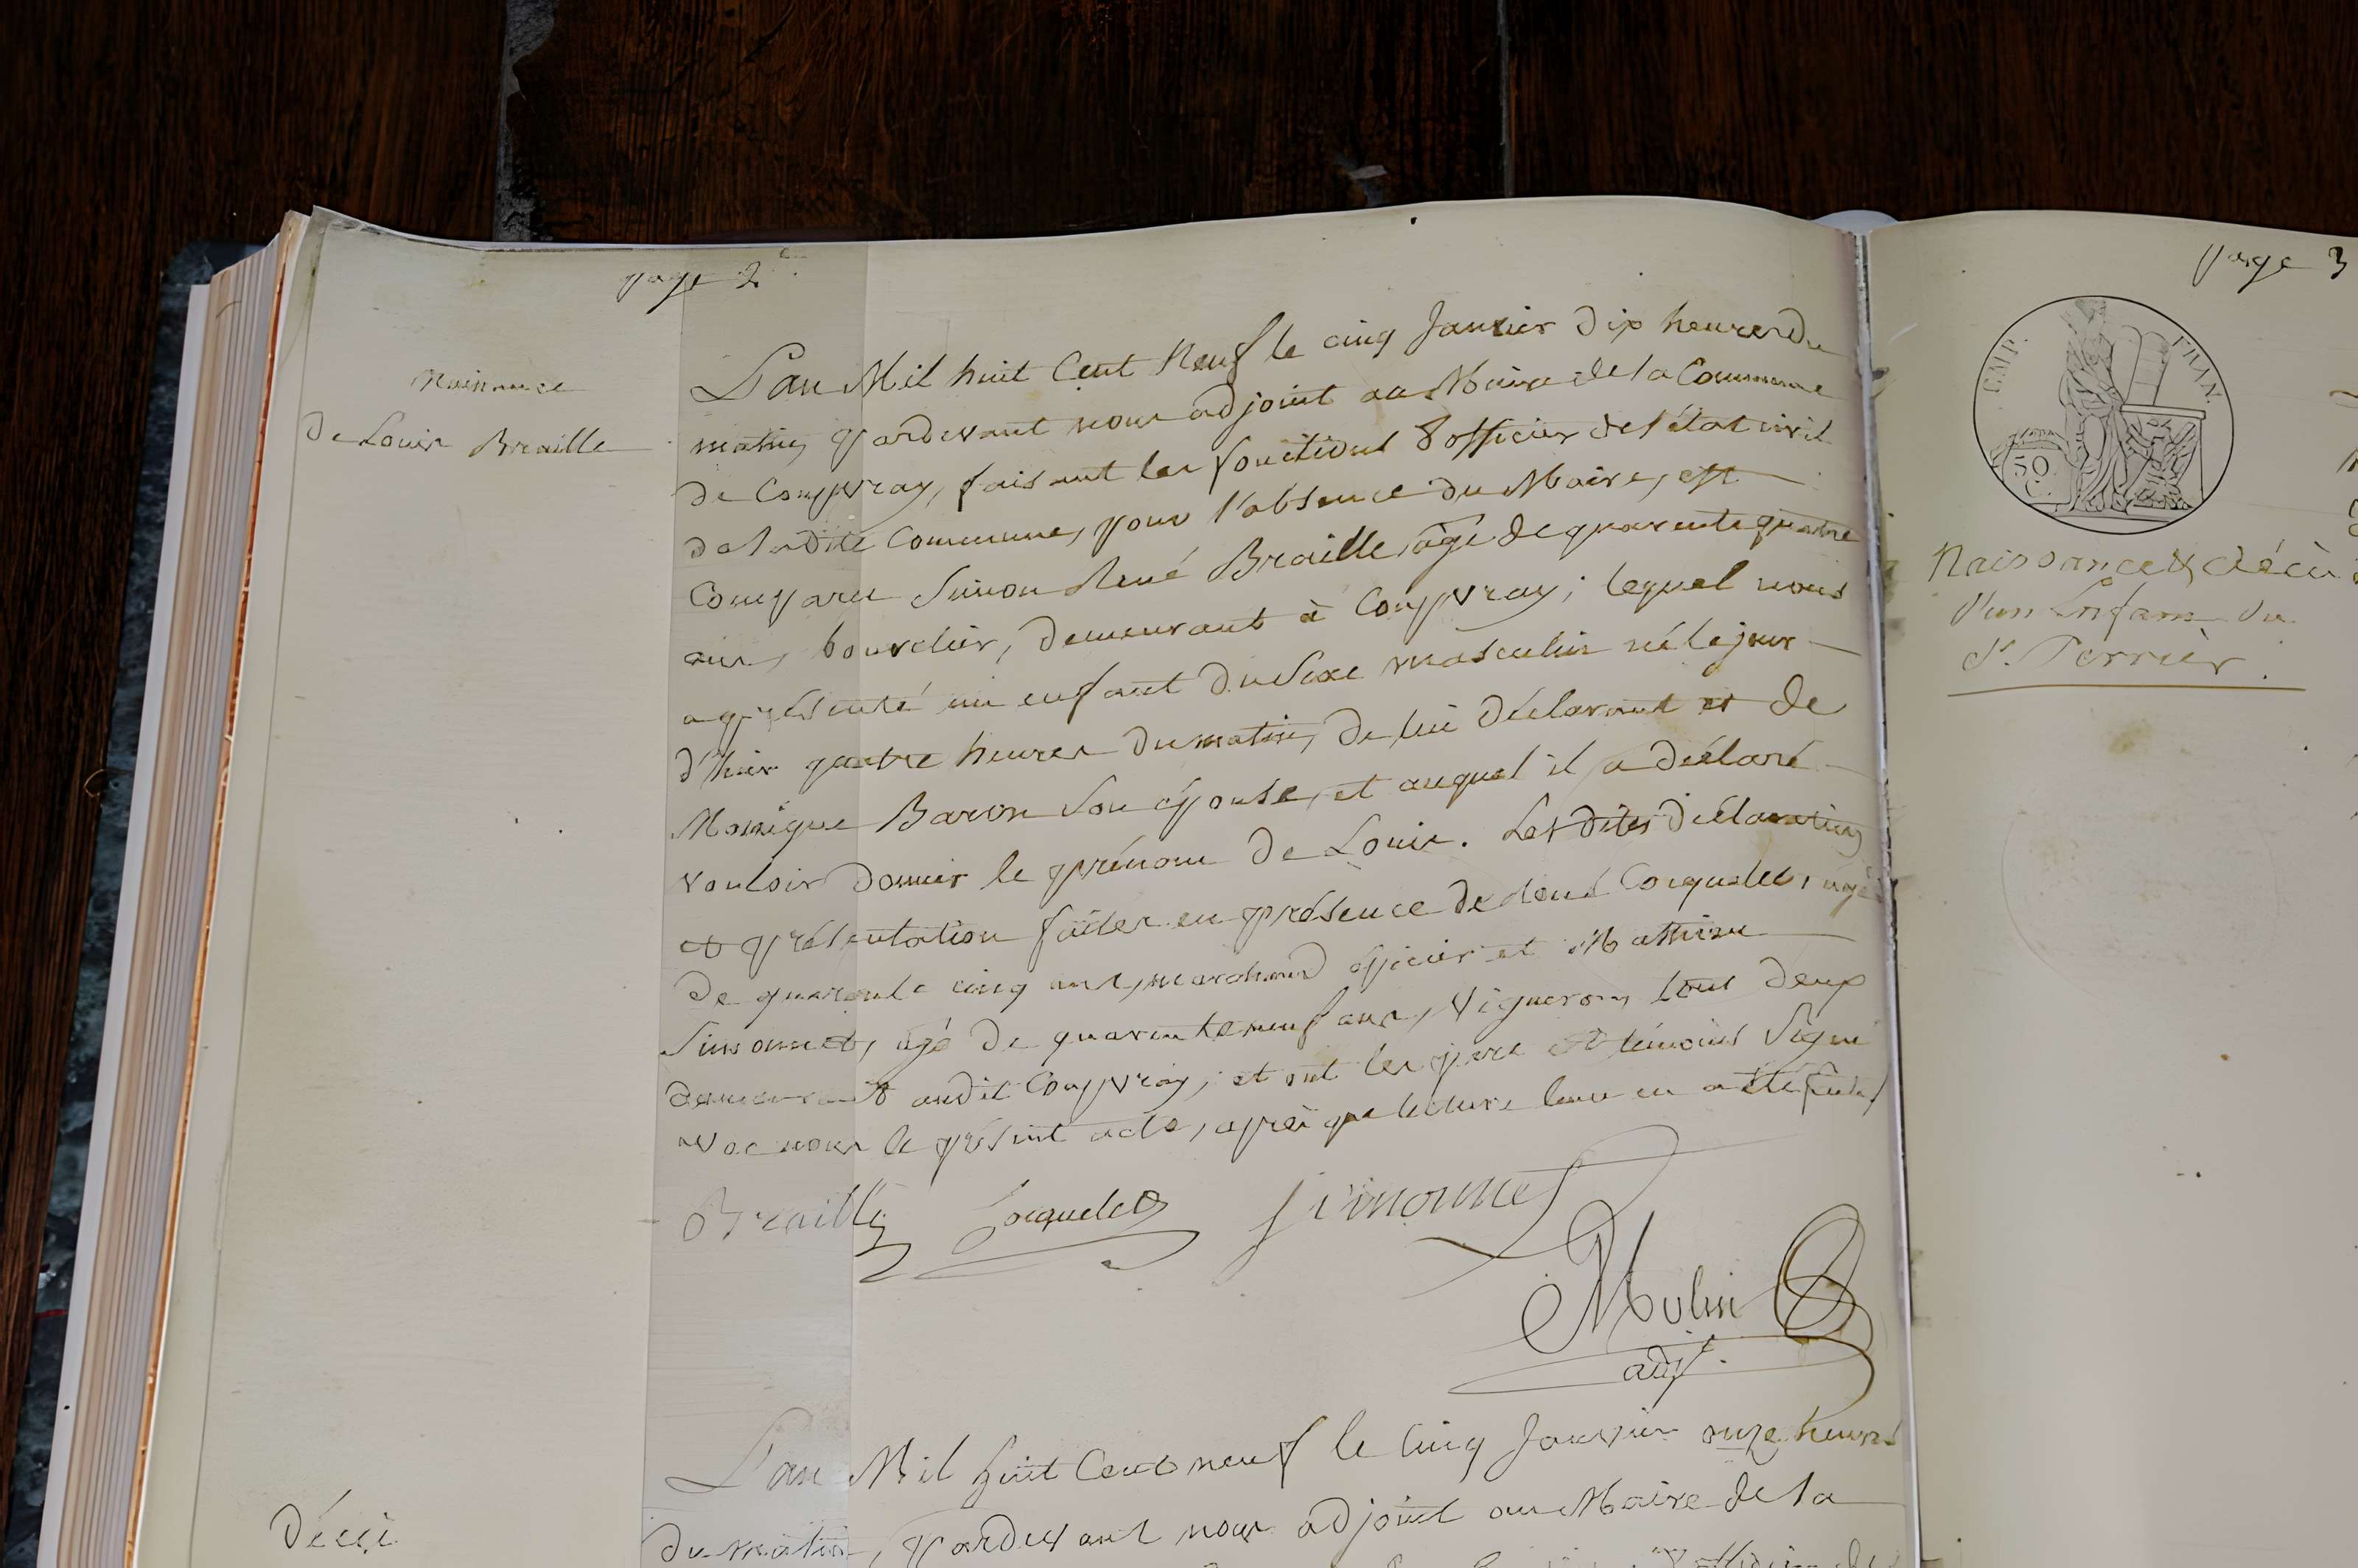 page 2e.
Naissance
De Louis Braille
L'an Mil huit Cent Neuf le cinq Janvier dix heures du
matin, pardevant nous adjoint au Maire de la Commune
de Coupvray, faisant les fonctions d'officier de l'état civil
de ladite Commune, pour l'absence du Maire, est
Comparu Simon René Braille, agé de quarente quatre
ans, bourelier, demeurant à Coupvray; lequel nous
a présenté un enfant du Sexe masculin né le jour
d'hier quatre heures du matin, de lui déclarant et de
Monique Baron Son épouse, et auquel il a déclaré
vouloir donner le prénom de Louis. Lesdites déclaration
et présentation faites en présence de Coquelet, agé
de quarente cinq ans, marchand épicier et Mathieu
Simonnet, agé de quarente neuf ans, Vigneron, tous deux
demeurant audit Coupvray; et ont les pere et témoins Signé
avec nous le présent acte, après que lecture leur en a été faite
Braille Coquelet Simonnet
Molin
adjt.
Décès
L'an Mil huit Cent neuf le Cinq Janvier onze heures
du matin, pardevant nous adjoint au Maire de la
page 3
EMP. FRAN.
50
C.
Naissance & décès
d'un Enfant du
Sr. Perrier.